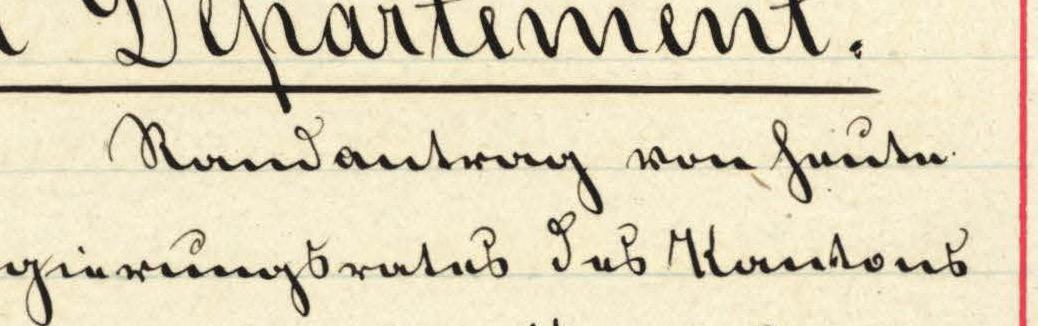 Departement.
Randantrag von heute
gierungsrates des Kantons